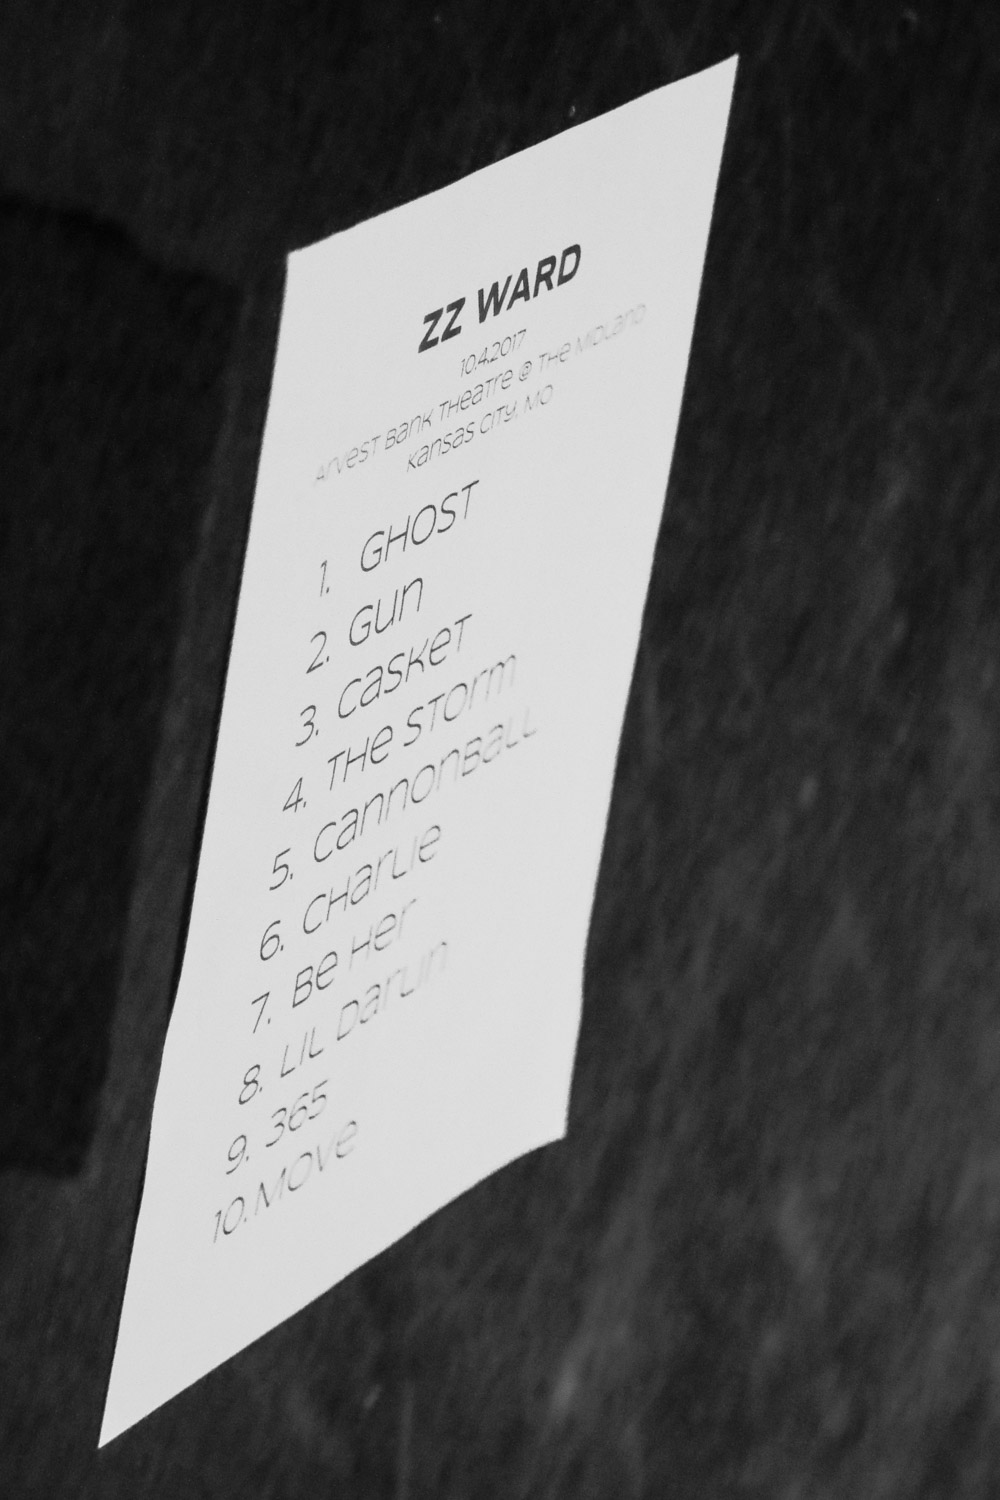 ZZ WARD
10.4.2017
Arvest Bank Theatre @ The Midland
Kansas City, MO
1. GHOST
2. Gun
3. Casket
4. The Storm
5. Cannonball
6. Charlie
7. Be Her
8. Lil Darlin
9. 365
10. Move